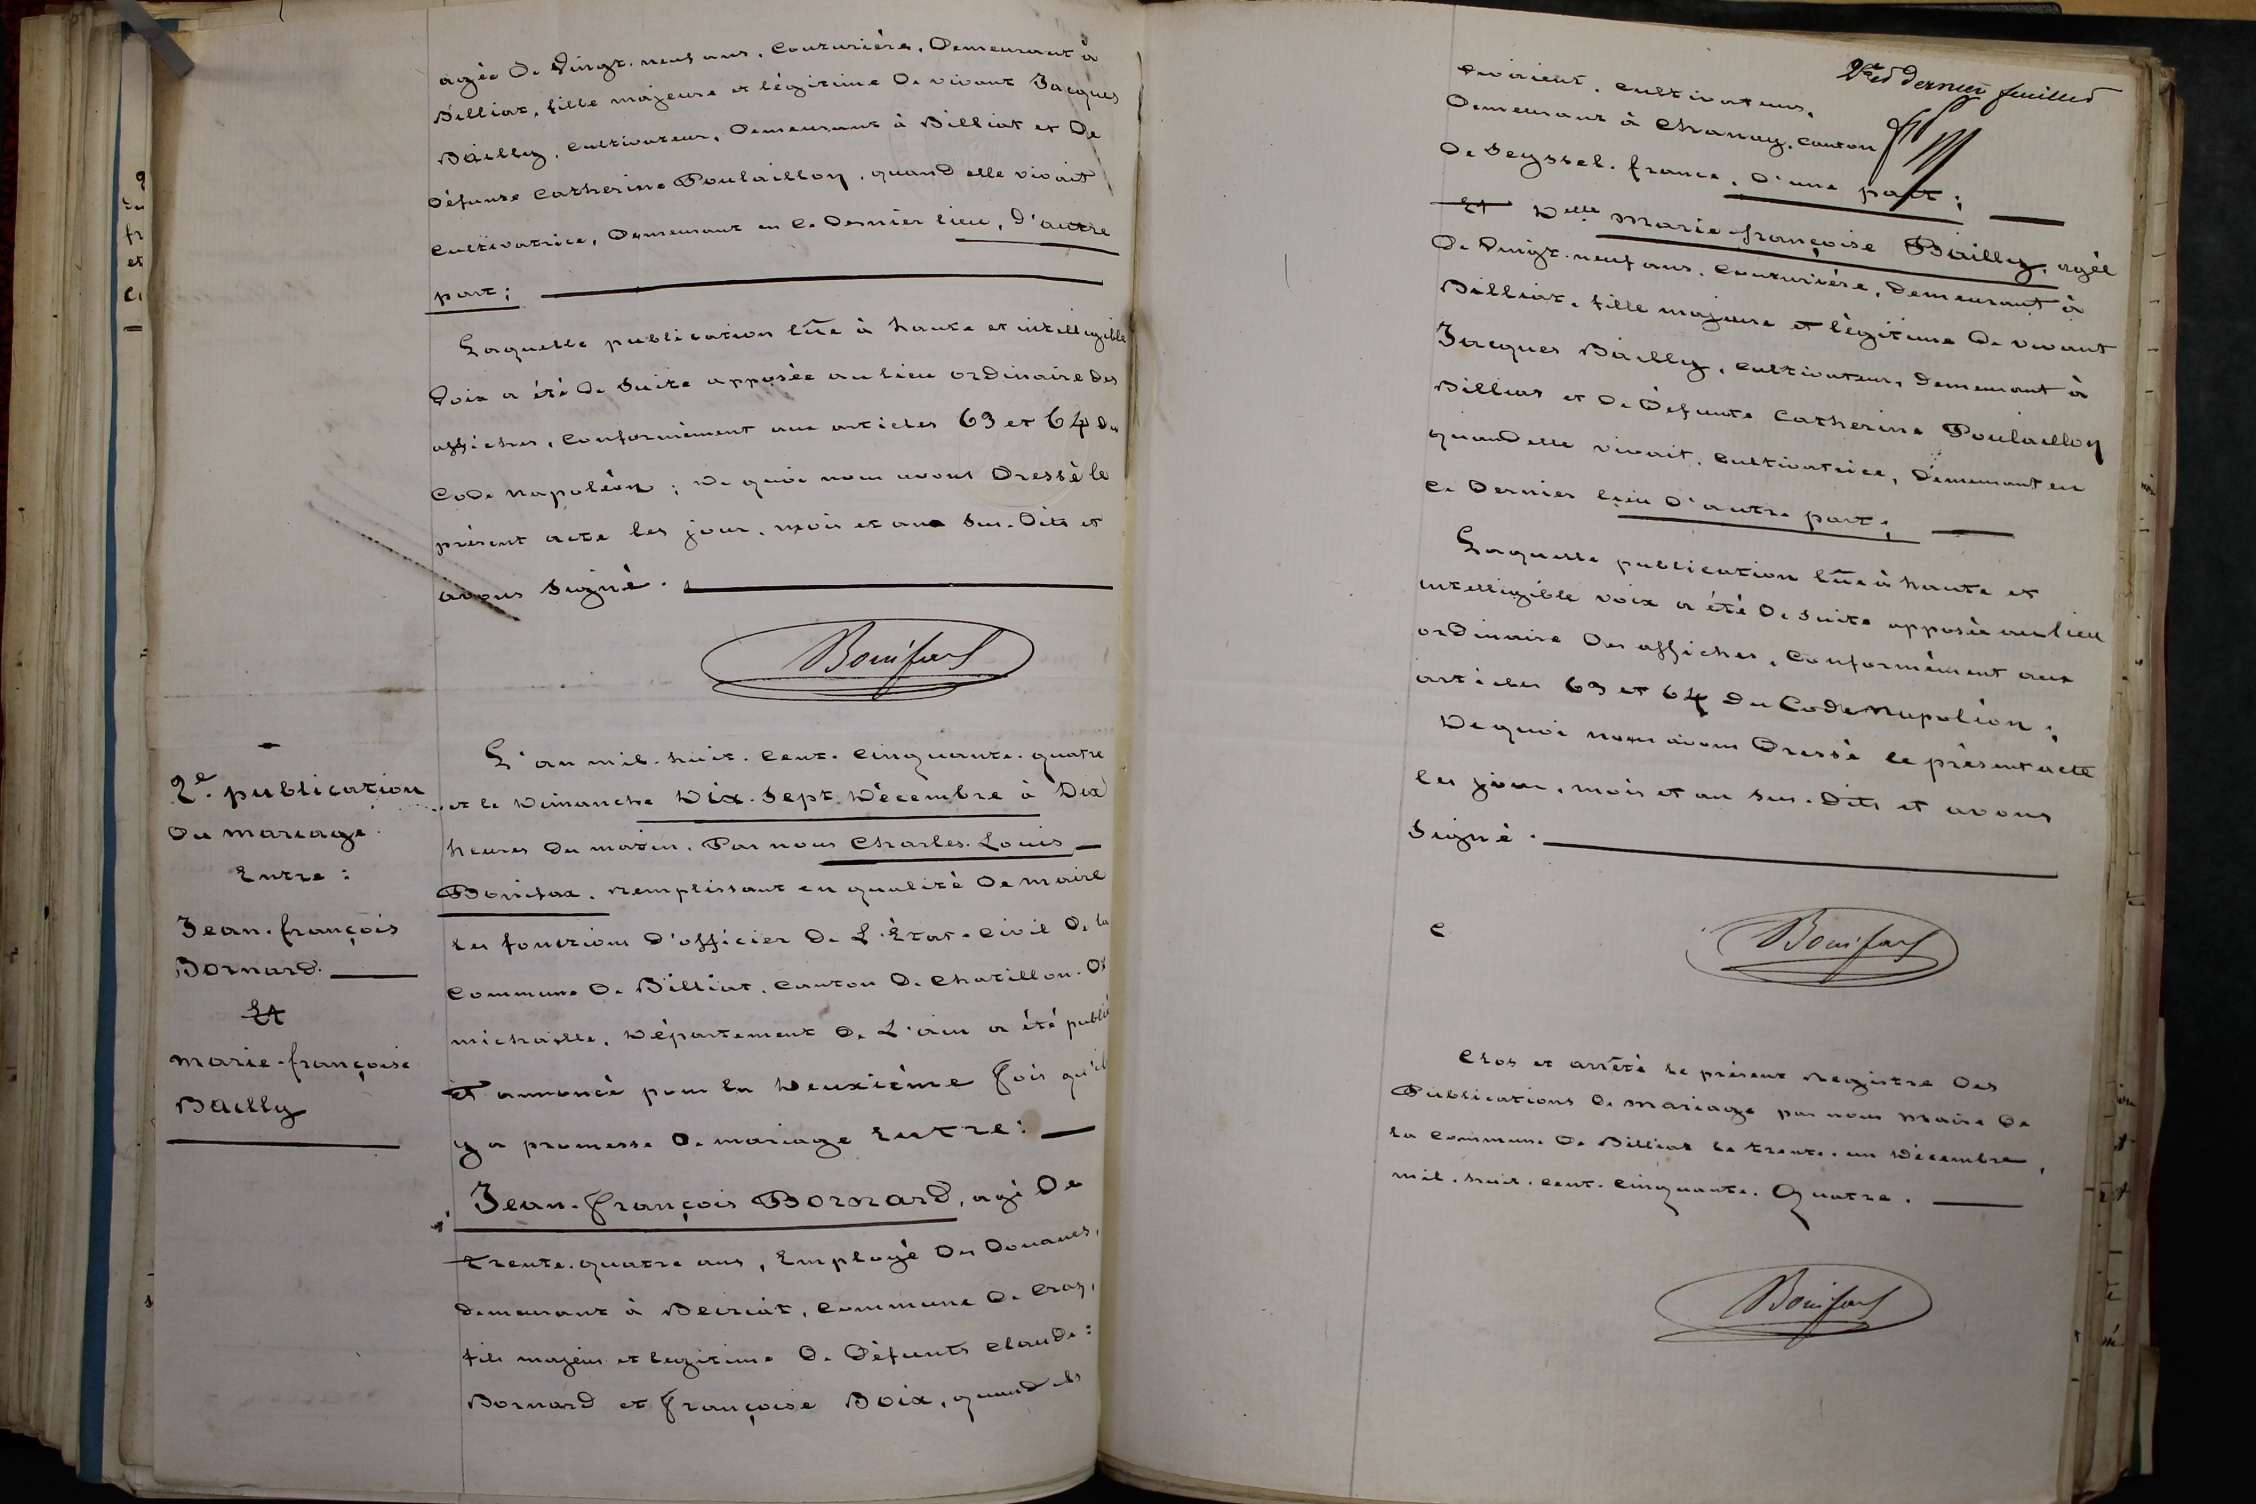 agée de Vingt-neuf ans, Couturière, Demeurant à
Billiat, fille majeure et légitime de vivant Jacques
Bailly, Cultivateur, Demeurant à Billiat et de
défunte Catherine Poulaillon, quand elle vivait
Cultivatrice, Demeurant en ce dernier lieu, d'autre
part;
Laquelle publication lûe à haute et intelligible
Voix a été de suite apposée au lieu ordinaire des
affiches, Conformément aux articles 63 et 64 du
Code Napoléon; De quoi nous avons Dressé le
présent acte les jour, mois et an Sus-Dits et
avons Signé.
Bonifax
2e publication
Du mariage
Entre:
Jean-françois
Bornard.
Et
marie-françoise
Bailly
L'an mil-huit-Cent-Cinquante-quatre
et le Dimanche Dix-Sept Décembre à Dix
heures du matin, Par nous Charles-Louis
Bonifax, remplissant en qualité de maire
les fonctions d'officier de L'État-Civil de la
Commune de Billiat, Canton de Chatillon-de
michaille, Département de L'ain a été publié
et annoncé pour la Deuxième fois qu'il
y a promesse de mariage Entre:
Jean-François Bornard, agé de
trente-quatre ans, Employé des Douanes,
demeurant à Commune de
fils majeur et legitime de Défunts Claude
Bornard et Françoise Boix, quand ils
2e et Dernier feuillet
vivaient, Cultivateurs,
Demeurant à Chanay, Canton
de Seyssel, france, d'une part;
Et Delle Marie-françoise Bailly, agée
de Vingt-neuf ans, Couturière, Demeurant à
Billiat, fille majeure et légitime de vivant
Jacques Bailly, Cultivateur, Demeurant à
Billiat et de Défunte Catherine Poulaillon
quand elle vivait, Cultivatrice, Demeurant en
ce Dernier lieu d'autre part;
Laquelle publication lûe à haute et
intelligible voix a été de suite apposée au lieu
ordinaire des affiches, Conformément aux
articles 63 et 64 du Code Napoléon;
De quoi nous avons Dressé le présent acte
les jour, mois et an Sus-Dits et avons
Signé.
Bonifax
Clos et arrêté le présent Registre des
Publications de mariage par nous Maire de
la Commune de Billiat le trente-un Décembre,
mil-huit-cent-Cinquante-Quatre.
Bonifax